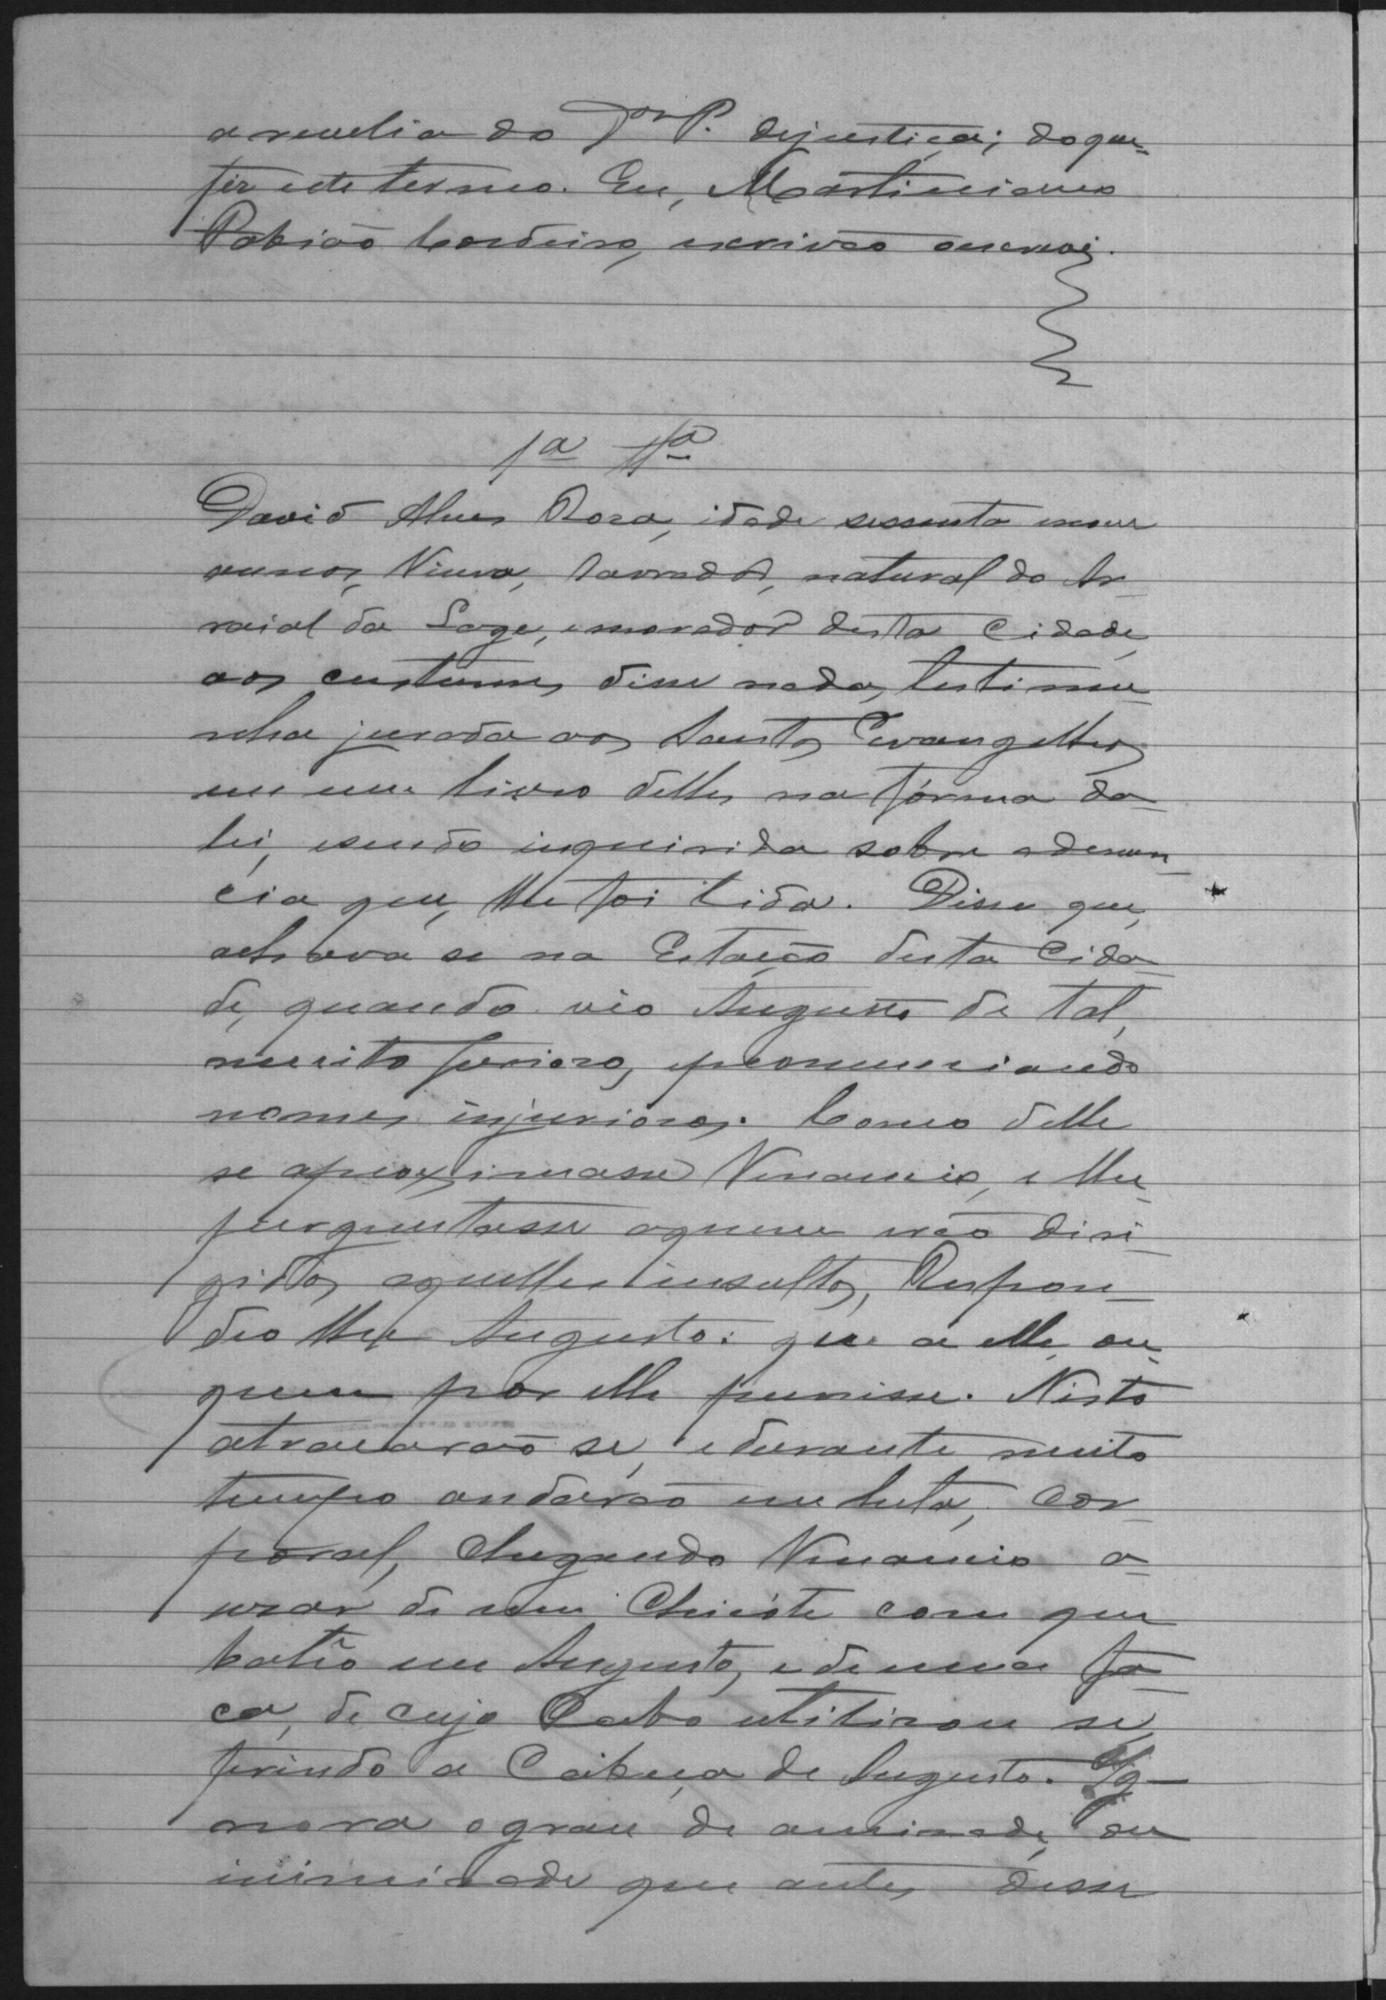 a revelia do Dor P. dejustiça; doque
fiz este termo. Eu, Martiniano
Cordeiro, escrivão escrevi.
1ª Ttª
David Alves Roza, idade sessenta e nove
annos, Viuvo, Lavrador, natural do Ar-
raial da Lage, emorador desta Cidade,
aos custumes disse nada, testimu-
nha jurada aos Santos Evangelhos
em um livro delles na fórma da
lei, esendo inquirida sobre adenun-
cia que, lhe foi lida. Disse que,
achava se na Estação desta Cida-
de, quando vio Augusto de tal,
muito furiozo, pronunciando
nomes injuriozos. Como delle
se aproximasse Venancio, e lhe
perguntasse aquem vão diri-
gidos aquelles insultos, Respon-
deo lhe Augusto: que a elle, ou
quem por elle punisse. Nisto
atracarão se, edurante muito
tempo andarão em luta, Cor-
poral, Chegando Venancio a
uzar de um Chicóte com que
batêo em Augusto, e de uma fa-
ca, de cujo Cabo utilizou se,
ferindo a Cabeça de Augusto. Ig-
nora ograu de amizade, ou
inimizade que antes desse